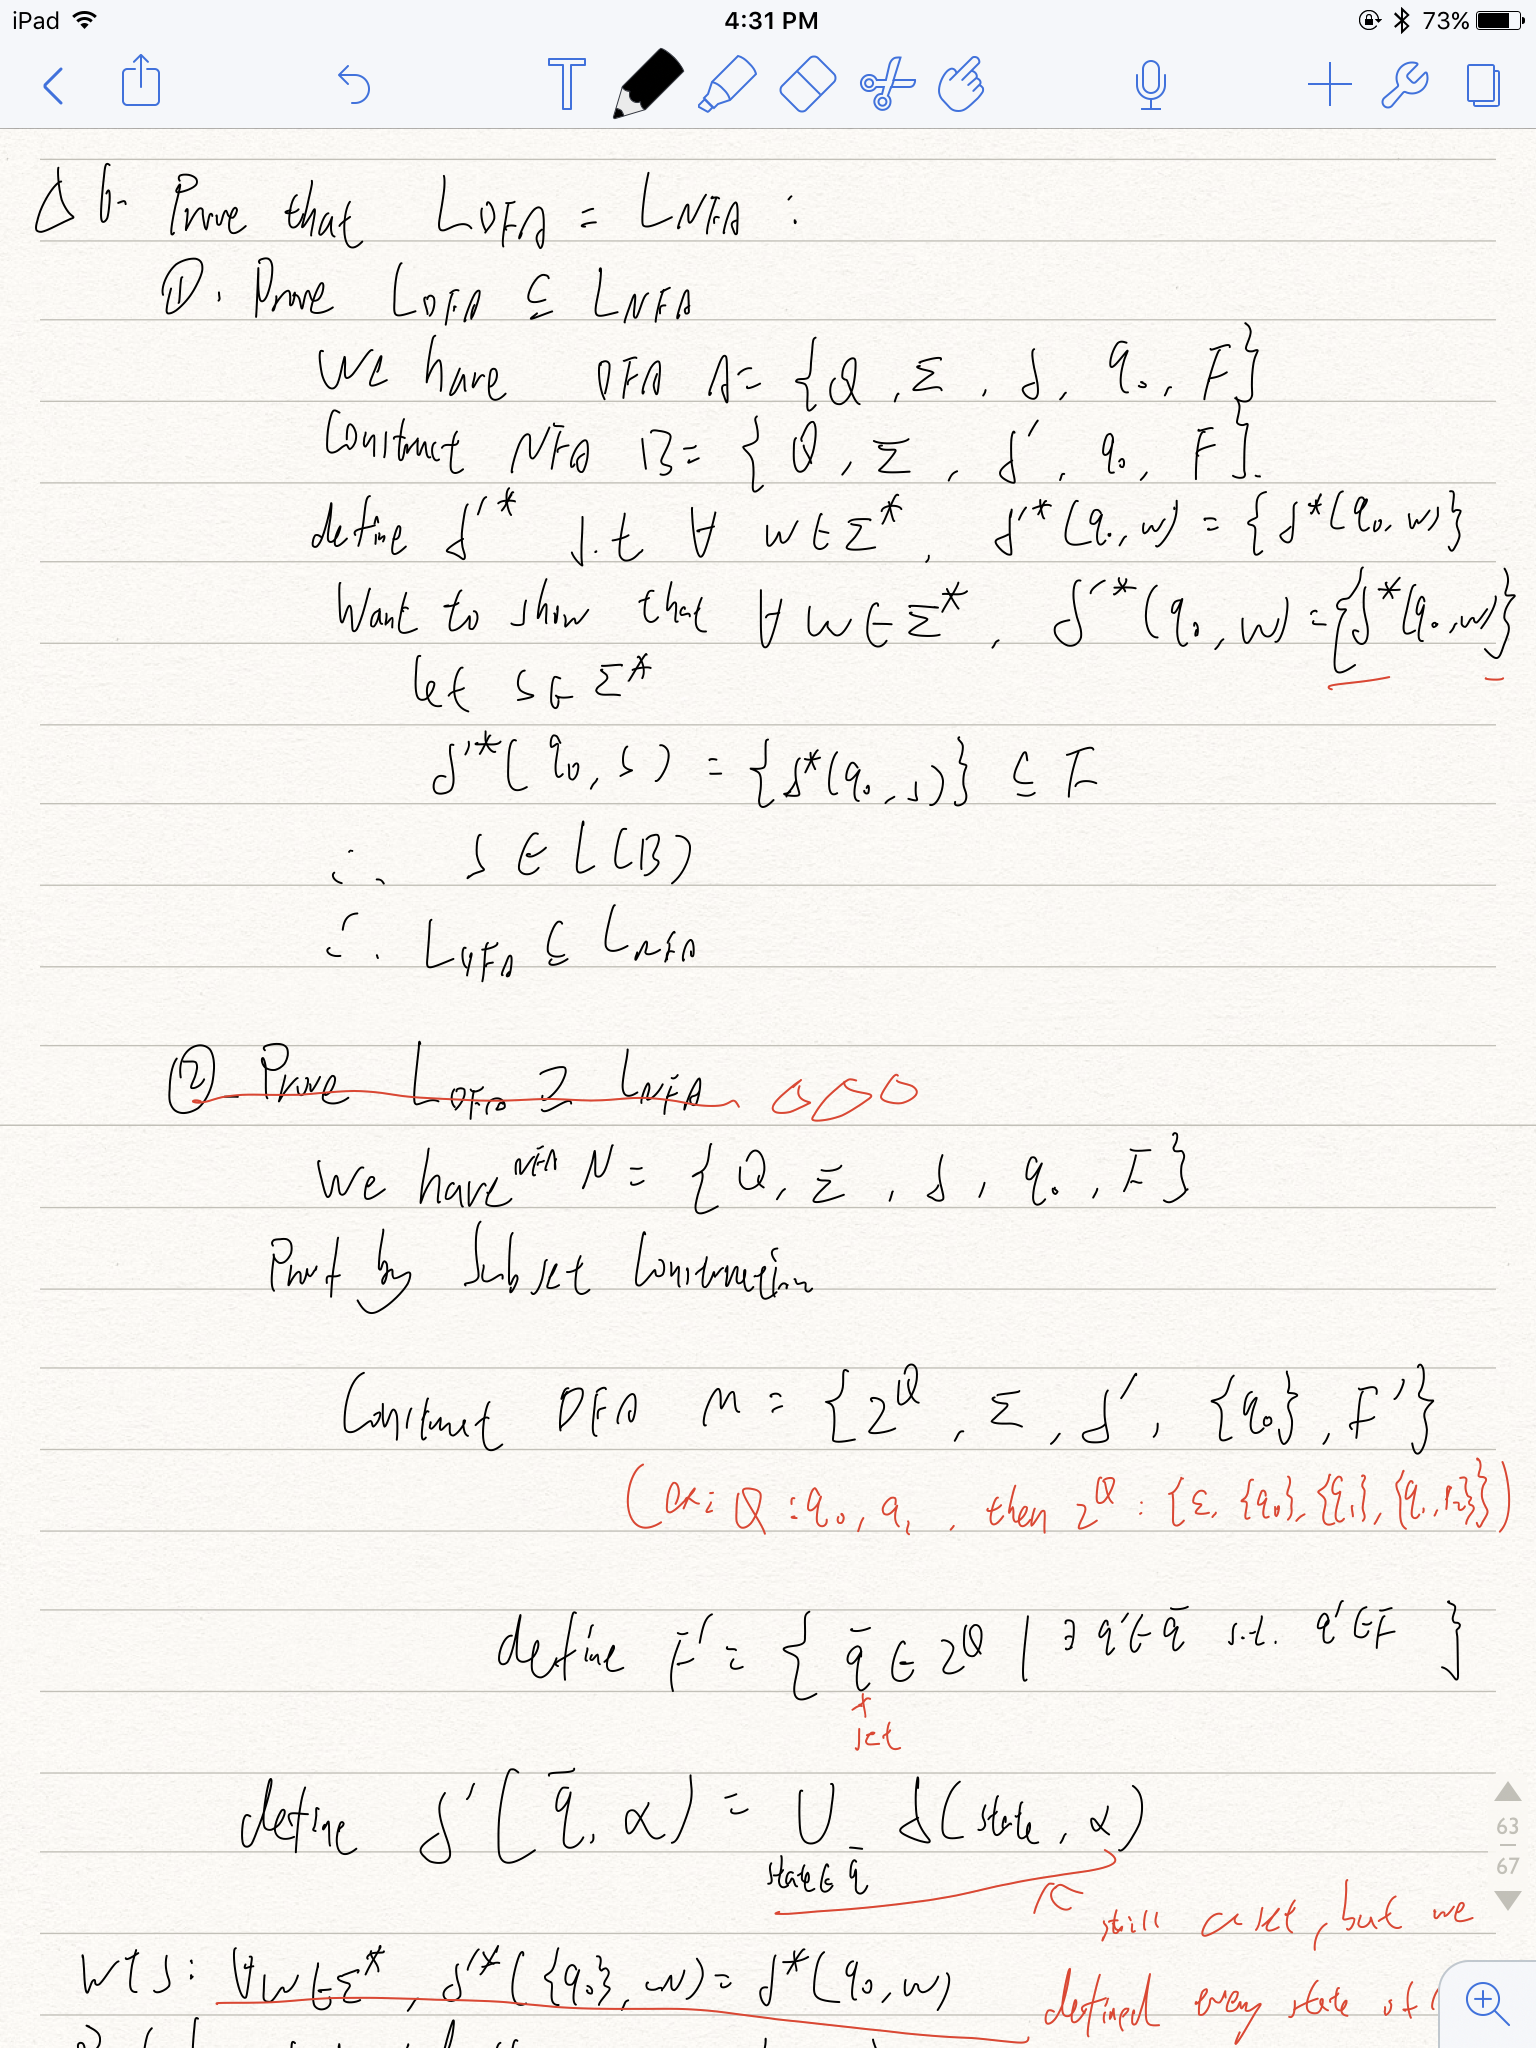 iPad
4:31 PM
73%
T
△ 6. Prove that L_DFA = L_NFA :
①. Prove L_DFA ⊆ L_NFA
We have DFA A = {Q, Σ, δ, q₀, F}
Construct NFA B = {Q, Σ, δ', q₀, F}.
define δ'* s.t ∀ w∈Σ*, δ'*(q₀, w) = {δ*(q₀, w)}
Want to show that ∀ w∈Σ*, δ'*(q₀, w) = {δ*(q₀, w)}
let s∈Σ*
δ'*(q₀, s) = {δ*(q₀, s)} ⊆ F
∴ s ∈ L(B)
∴ L_DFA ⊆ L_NFA
② Prove L_DFA ⊇ L_NFA
We have NFA N = {Q, Σ, δ, q₀, F}
Proof by Subset Construction
Construct DFA M = {2^Q, Σ, δ', {q₀}, F'}
(ex: Q : q₀, q₁, then 2^Q : {Σ, {q₀}, {q₁}, {q₁, q₂}})
define F' = { q̄ ∈ 2^Q | ∃ q'∈q̄ s.t. q'∈F }
set
define δ'(q̄, α) = ∪ δ(state, α)
state∈q̄
63
67
still a set, but we
WTS: ∀w∈Σ*, δ'*({q₀}, w) = δ*(q₀, w)
defined every state of